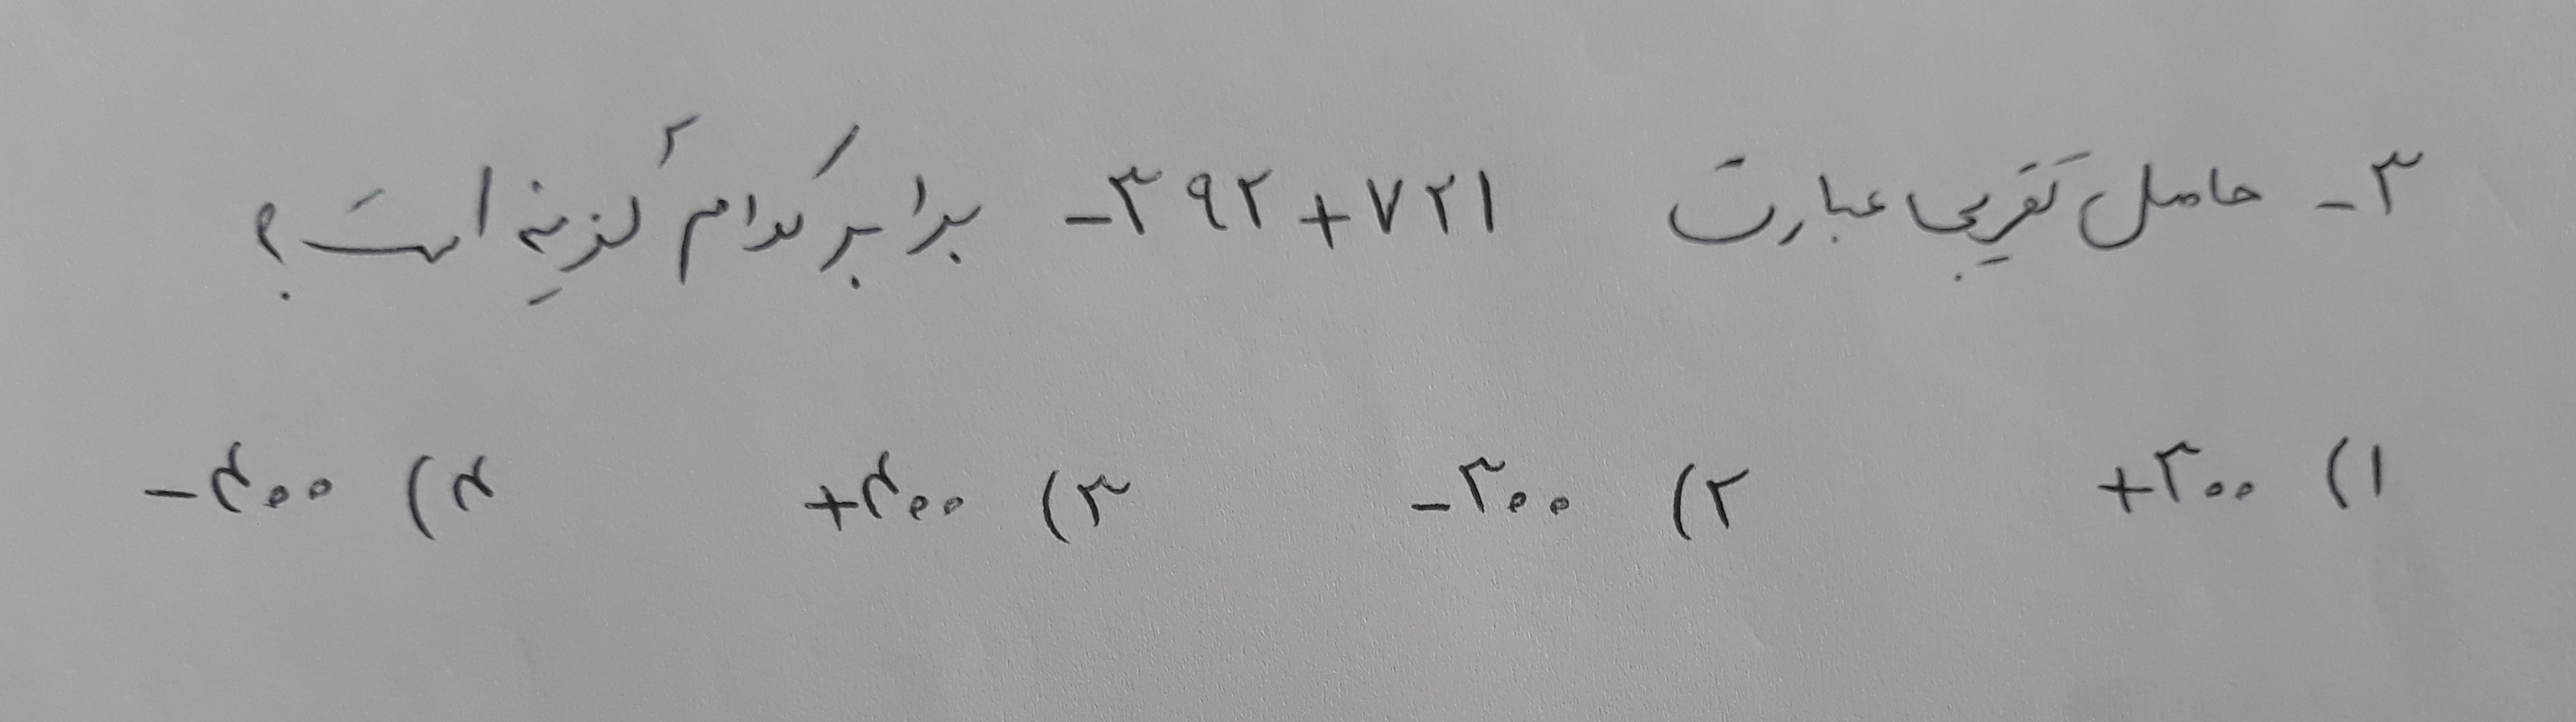 ۳- حاصل تقریبی عبارت -۳۹۲+۷۲۱ برابر کدام گزینه است؟
۱) +۳۰۰ ۲) -۳۰۰ ۳) +۴۰۰ ۴) -۴۰۰